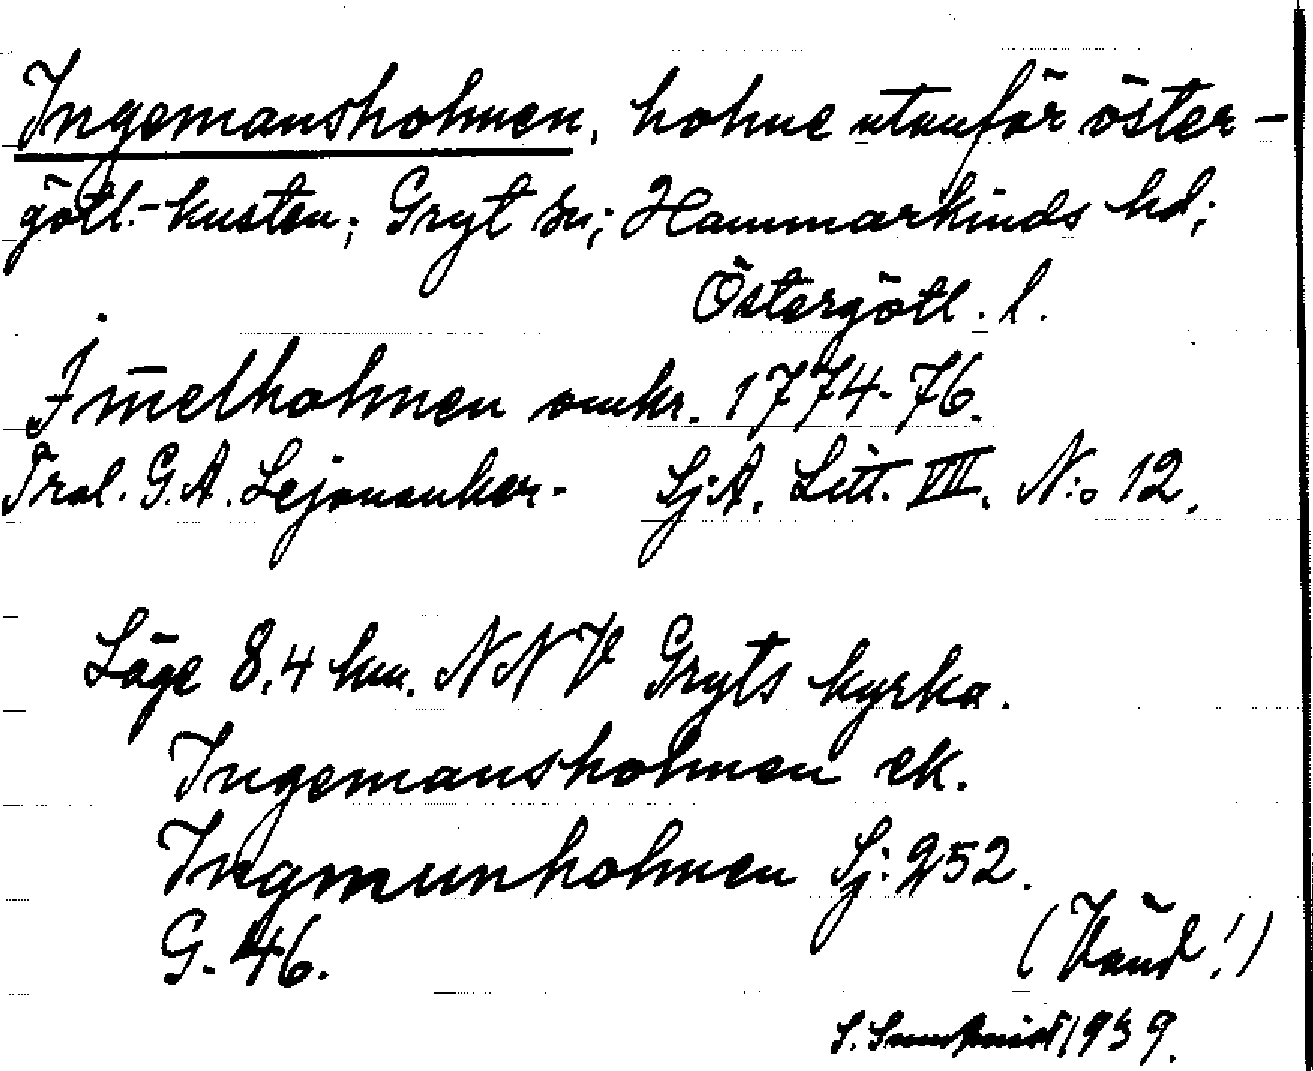 Ingemansholmen, holme utanför öster-
götl.-kusten; Gryt sn; Hammarkinds hd;
Östergötl. l.
Imelholmen omkr. 1774-76.
Trol. G.A. Lejonanker. Sj.A. Litt. VIII. N:o 12.
Läge 8,4 km. NNV Gryts kyrka.
Ingemansholmen ek.
Ingmunholmen Sj: 252.
G. 46.
(Vänd!)
S. 1939.